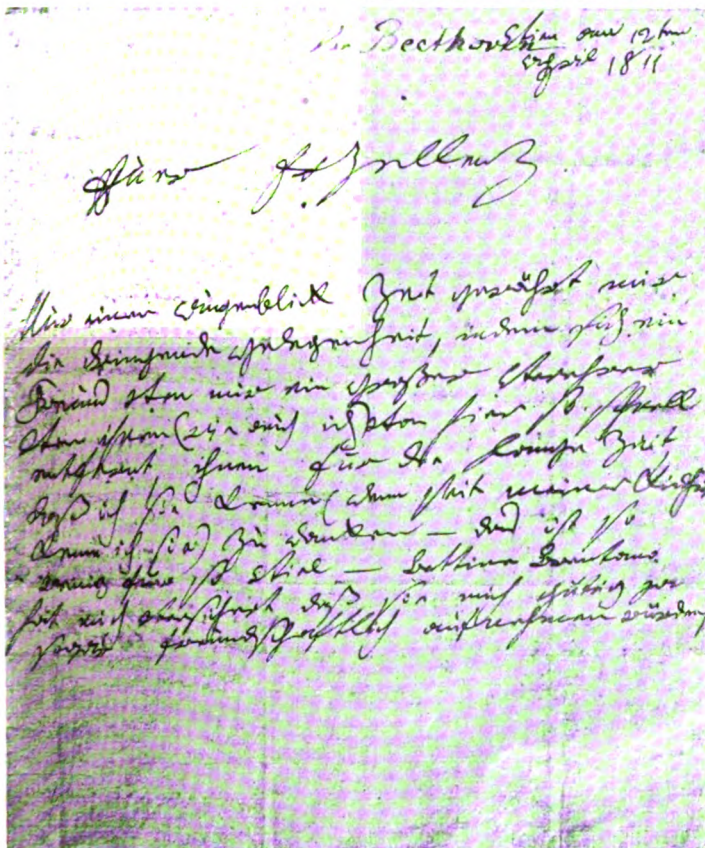 v. Beethoven Wien am 12ten
April 1811
Euer Exzellenz
Nur einen Augenblick Zeit gewährt mir
die dringende Gelegenheit, indem sich ein
Freund von mir ein großer Verehrer
von ihnen (wie auch ich) von hier so schnell
entfernt, ihnen für die lange Zeit
daß ich sie kenne (denn seit meiner Kindheit
kenne ich sie) zu danken — das ist so
wenig für so viel — Bettine Brentano
hat mich versichert daß sie mich gütig ja
sogar freundschaftlich aufnehmen würden,